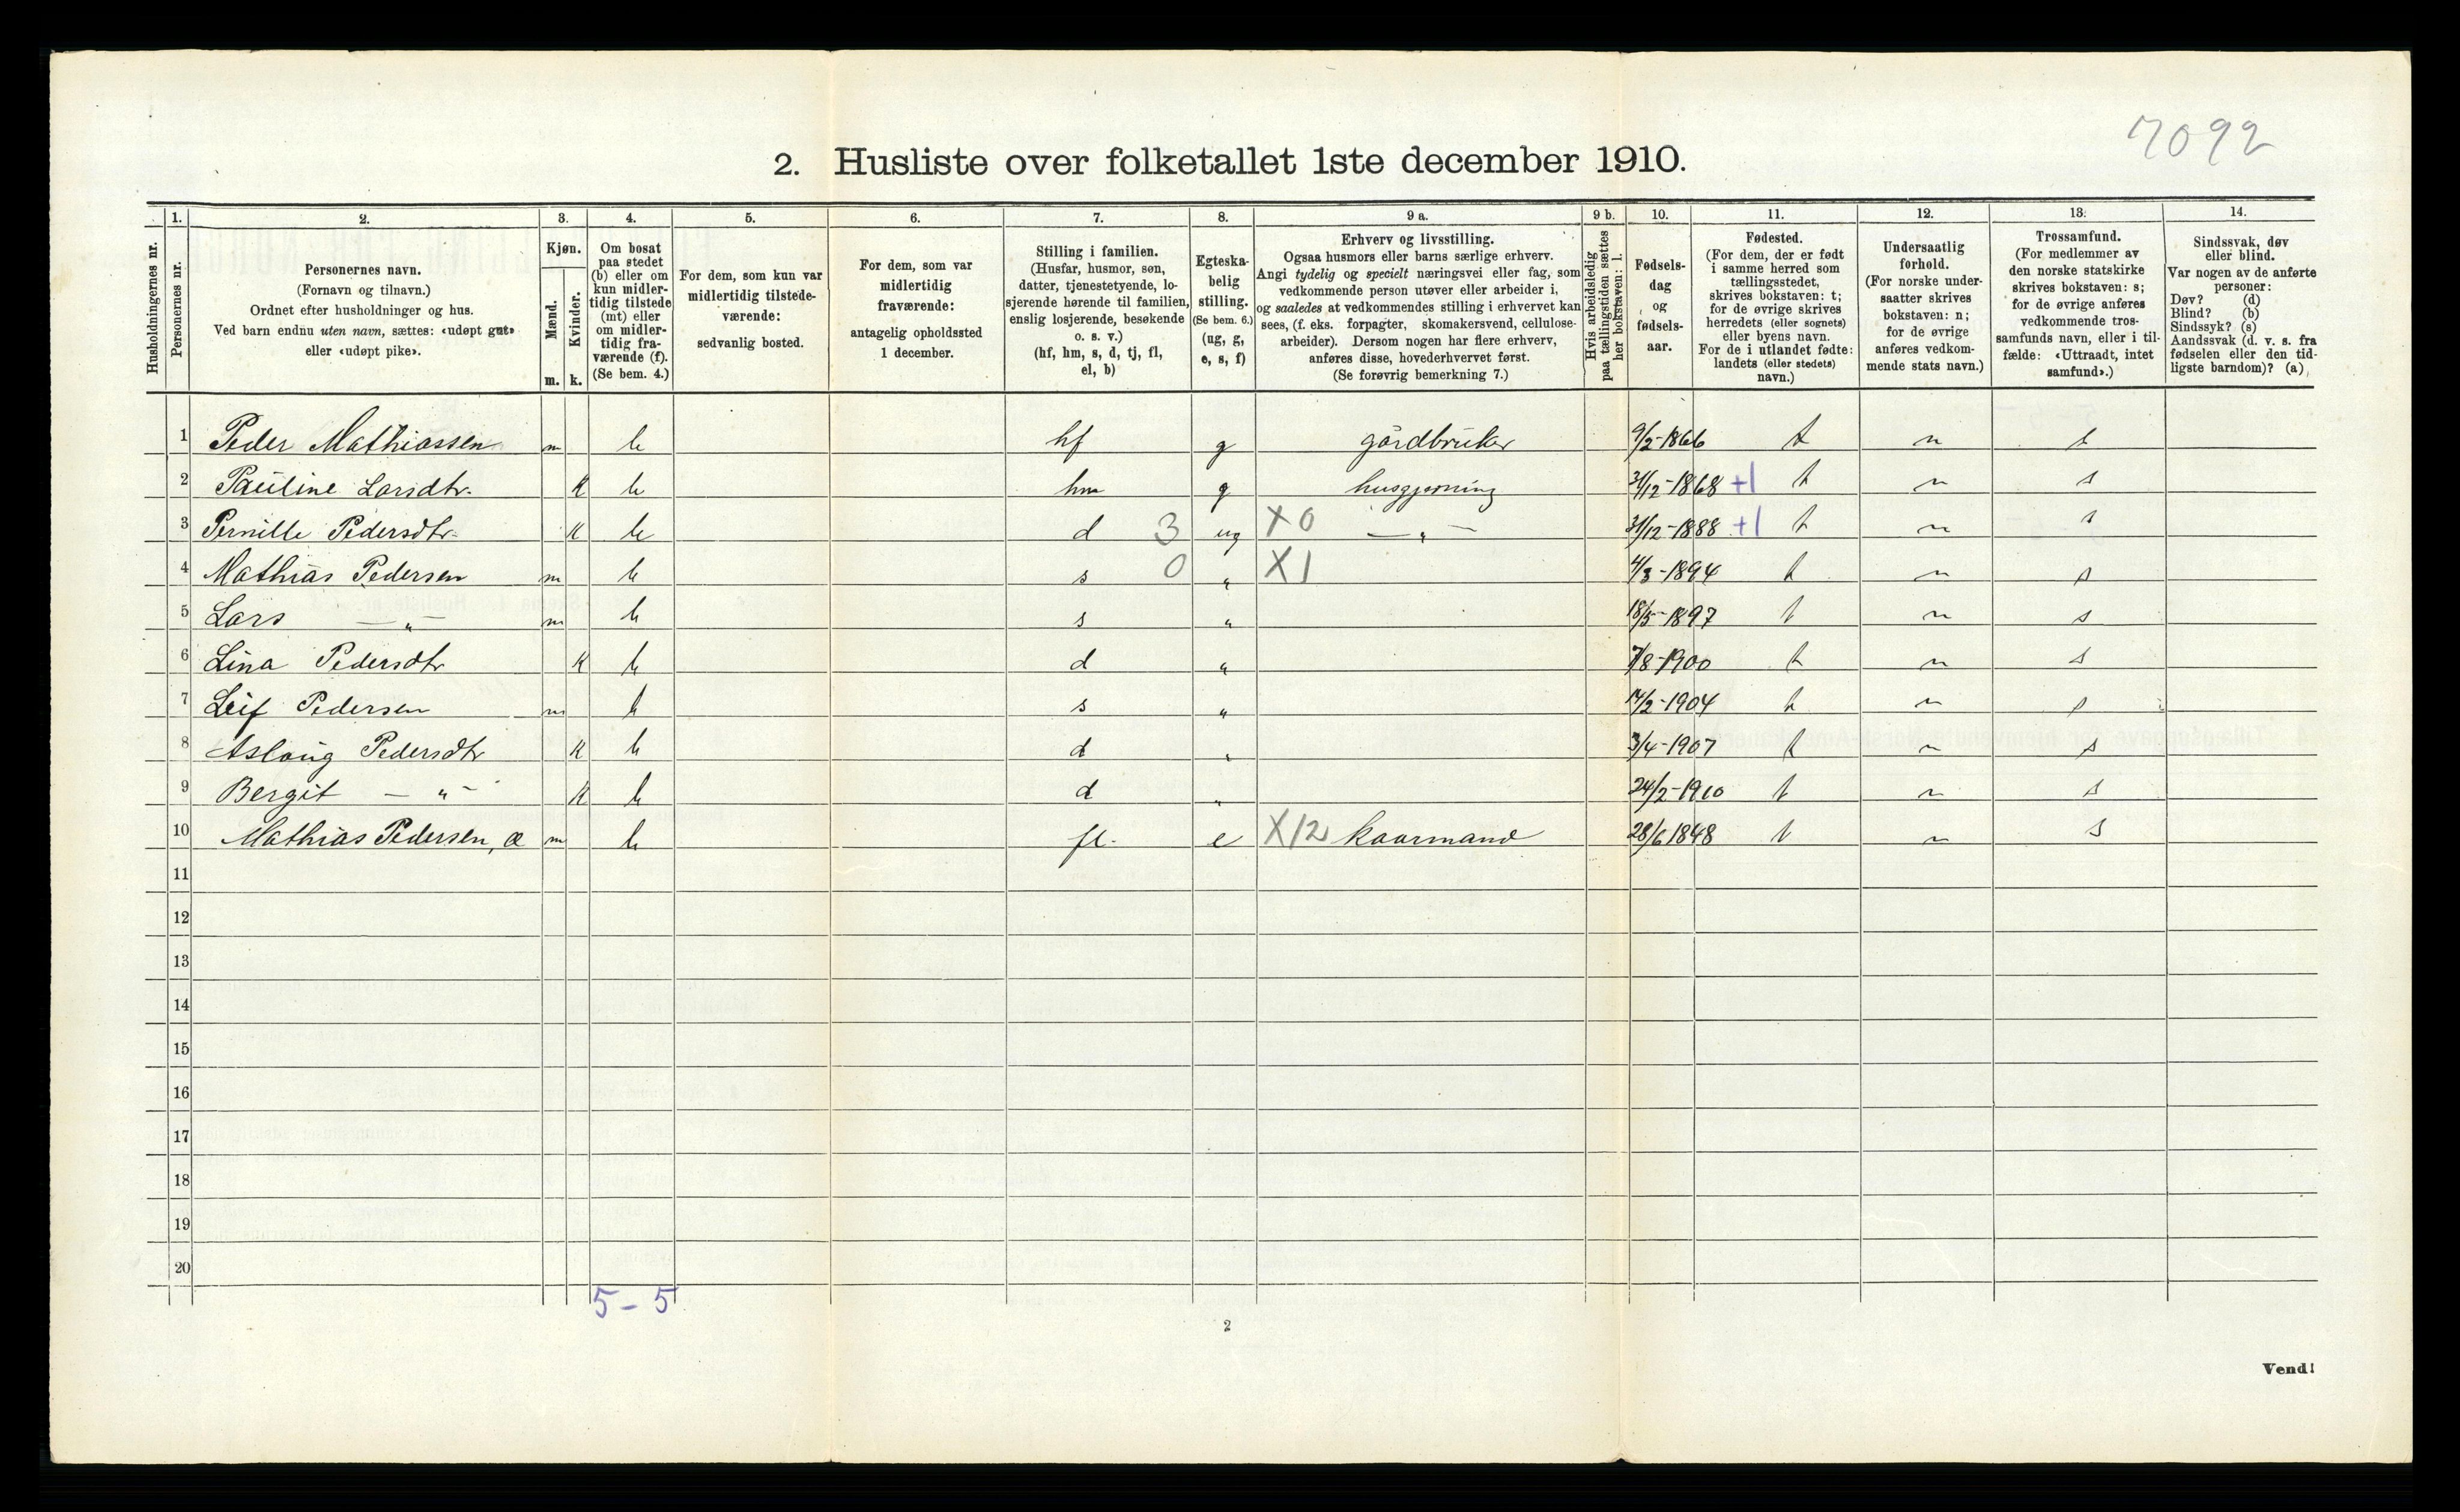 7092
2. Husliste over folketallet 1ste december 1910.
1. 2. 3. 4. 5. 6. 7. 8. 9 a. 9 b. 10. 11. 12. 13. 14.
Husholdningernes nr.
Personernes nr.
Personernes navn.
(Fornavn og tilnavn.)
Ordnet efter husholdninger og hus.
Ved barn endnu uten navn, sættes: «udøpt gut»
eller «udøpt pike».
Kjøn.
Mænd.
Kvinder.
m. k.
Om bosat
paa stedet
(b) eller om
kun midler-
tidig tilstede
(mt) eller
om midler-
tidig fra-
værende (f).
(Se bem. 4.)
For dem, som kun var
midlertidig tilstede-
værende:
sedvanlig bosted.
For dem, som var
midlertidig
fraværende:
antagelig opholdssted
1 december.
Stilling i familien.
(Husfar, husmor, søn,
datter, tjenestetyende, lo-
sjerende hørende til familien,
enslig losjerende, besøkende
o. s. v.)
(hf, hm, s, d, tj, fl,
el, b)
Egteska-
belig
stilling.
(Se bem. 6.)
(ug, g,
e, s, f)
Erhverv og livsstilling.
Ogsaa husmors eller barns særlige erhverv.
Angi tydelig og specielt næringsvei eller fag, som
vedkommende person utøver eller arbeider i,
og saaledes at vedkommendes stilling i erhvervet kan
sees, (f. eks. forpagter, skomakersvend, cellulose-
arbeider). Dersom nogen har flere erhverv,
anføres disse, hovederhvervet først.
(Se forøvrig bemerkning 7.)
Hvis arbeidsledig
paa tællingstiden sættes
her bokstaven: l.
Fødsels-
dag
og
fødsels-
aar.
Fødested.
(For dem, der er født
i samme herred som
tællingsstedet,
skrives bokstaven: t;
for de øvrige skrives
herredets (eller sognets)
eller byens navn.
For de i utlandet fødte:
landets (eller stedets)
navn.)
Undersaatlig
forhold.
(For norske under-
saatter skrives
bokstaven: n;
for de øvrige
anføres vedkom-
mende stats navn.)
Trossamfund.
(For medlemmer av
den norske statskirke
skrives bokstaven: s;
for de øvrige anføres
vedkommende tros-
samfunds navn, eller i til-
fælde: «Uttraadt, intet
samfund».)
Sindssvak, døv
eller blind.
Var nogen av de anførte
personer:
Døv? (d)
Blind? (b)
Sindssyk? (s)
Aandssvak (d. v. s. fra
fødselen eller den tid-
ligste barndom)? (a)
1 Peder Mathiassen m b hf g gårdbruker 9/2-1866 t n s
2 Pauline Larsdtr. K b hm g husgjerning 31/12-1868 +1 t n s
3 Pernille Pedersdtr. K b d 3 ug X0 — „ — 31/12-1888 +1 t n s
4 Mathias Pedersen m b s 0 „ X1 4/3-1894 t n s
5 Lars — „ — m b s „ 18/5-1897 t n s
6 Lina Pedersdtr K b d „ 7/8-1900 t n s
7 Leif Pedersen m b s „ 14/2-1904 t n s
8 Aslaug Pedersdtr K b d „ 3/4-1907 t n s
9 Bergit — „ - K b d „ 24/2-1910 t n s
10 Mathias Pedersen, æ m b fl. e X12 kaarmand 28/6 1848 t n s
11
12
13
14
15
16
17
18
19
20
5 - 5
2
Vend!